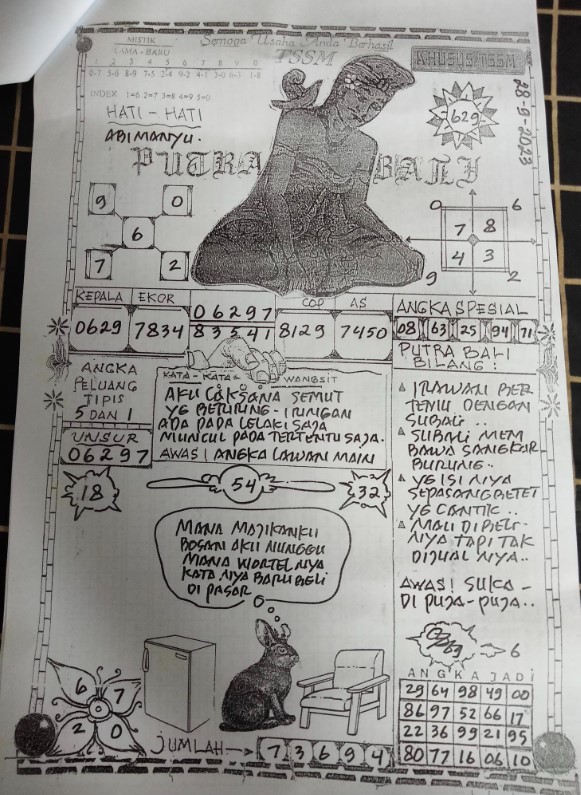 MISTIK
LAMA - BARU
Semoga Usaha Anda Berhasil
TSSM
KHUSUS TSSM
1 2 3 4 5 6 7 8 9 0
INDEX 1=6 2=7 3=8 4=9 5=0
HATI - HATI
ABIMANYU.
PUTRA BALI
629
28-9-2023
9 0
6
7 2
0 6
7 8
4 3
9 2
KEPALA EKOR
0629 7834
06297
83541
COP AS
8129 7450
ANGKA SPESIAL
08 63 25 94 71
ANGKA
PELUANG
TIPIS
5 DAN 1
UNSUR
06297
KATA - KATA = WANGSIT
AKU LAKSANA SEMUT
YG BERIRING - IRINGAN
ADA PADA LELAKI SAJA
MUNCUL PADA TERTENTU SAJA.
AWAS! ANGKA LAWAN MAIN
PUTRA BALI
BILANG :
IRAWAN BER
TEMU DENGAN
SUBALI ..
SUBALI MEM
BAWA SANGKAR
BURUNG..
YG ISI NYA
SEPASANG BETET
YG CANTIK ..
MAU DI BELI-
NYA TAPI TAK
DIJUAL NYA..
AWAS! SUKA -
DI PUJA-PUJA..
18
54
32
MANA MAJIKANKU
BOSAN AKU NUNGGU
MANA WORTEL NYA
KATA NYA BARU BELI
DI PASAR
6 7
2 0
6
ANGKA JADI
29 64 98 49 00
86 97 52 66 17
22 36 99 21 95
80 77 16 06 10
JUMLAH 7 3 6 9 4